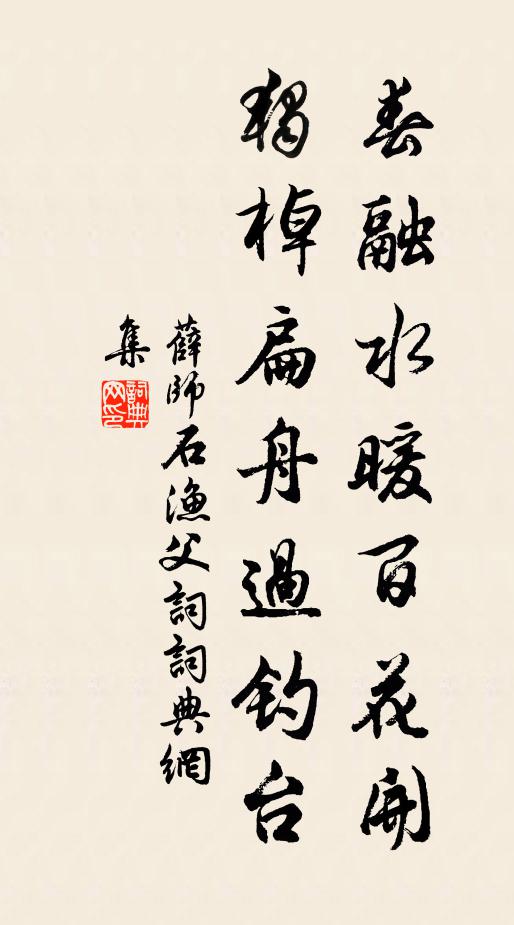 春融水暖百花開
獨棹扁舟過釣台
薛師石漁父詞詞典網
集
詞典
网印